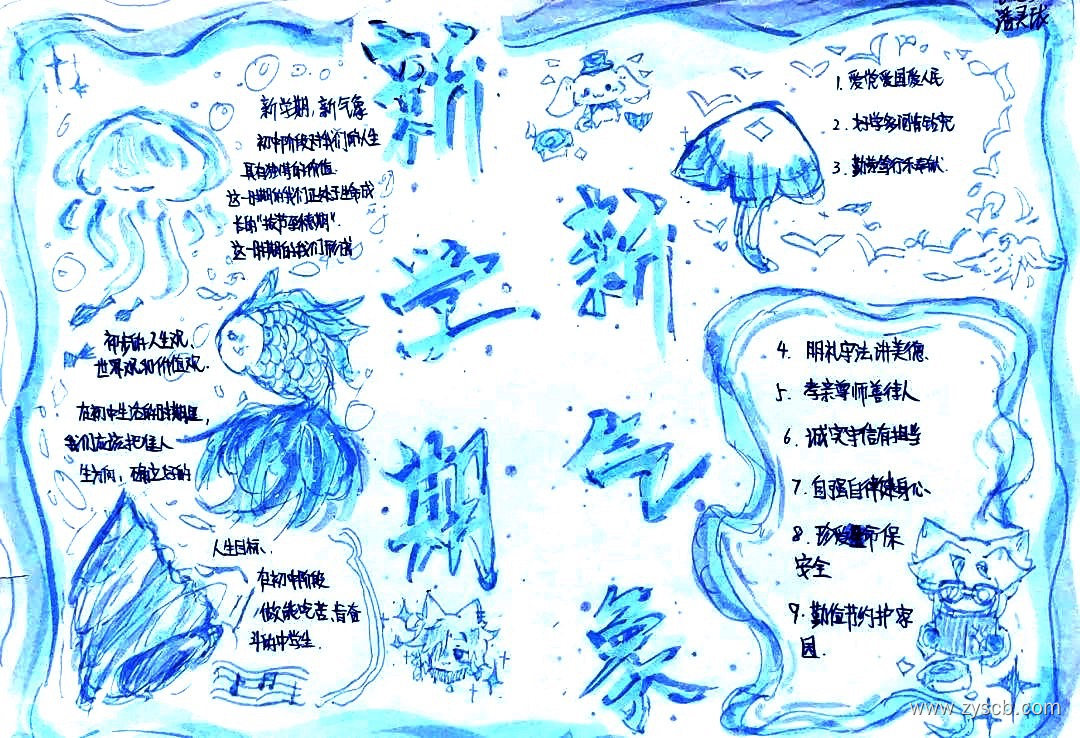 新学期
新气象
新学期,新气象
初中阶段对我们的人生
具有独特的价值.
这一时期的我们正处于生命成
长的"拔节孕穗期"
这一时期的我们形成
初步的人生观、
世界观和价值观.
在初中生活的时期里,
我们应该把准人
生方向,确立好的
人生目标、
在初中阶段
做能吃苦、肯奋
斗的中学生.
1. 爱党爱国爱人民
2. 好学多问肯钻研
3. 勤劳笃行乐奉献.
4. 明礼守法讲美德、
5. 孝亲尊师善待人
6. 诚实守信有担当
7. 自强自律健身心、
8. 珍爱生命保
安全
9. 勤俭节约护家
园.
www.zyscb.com